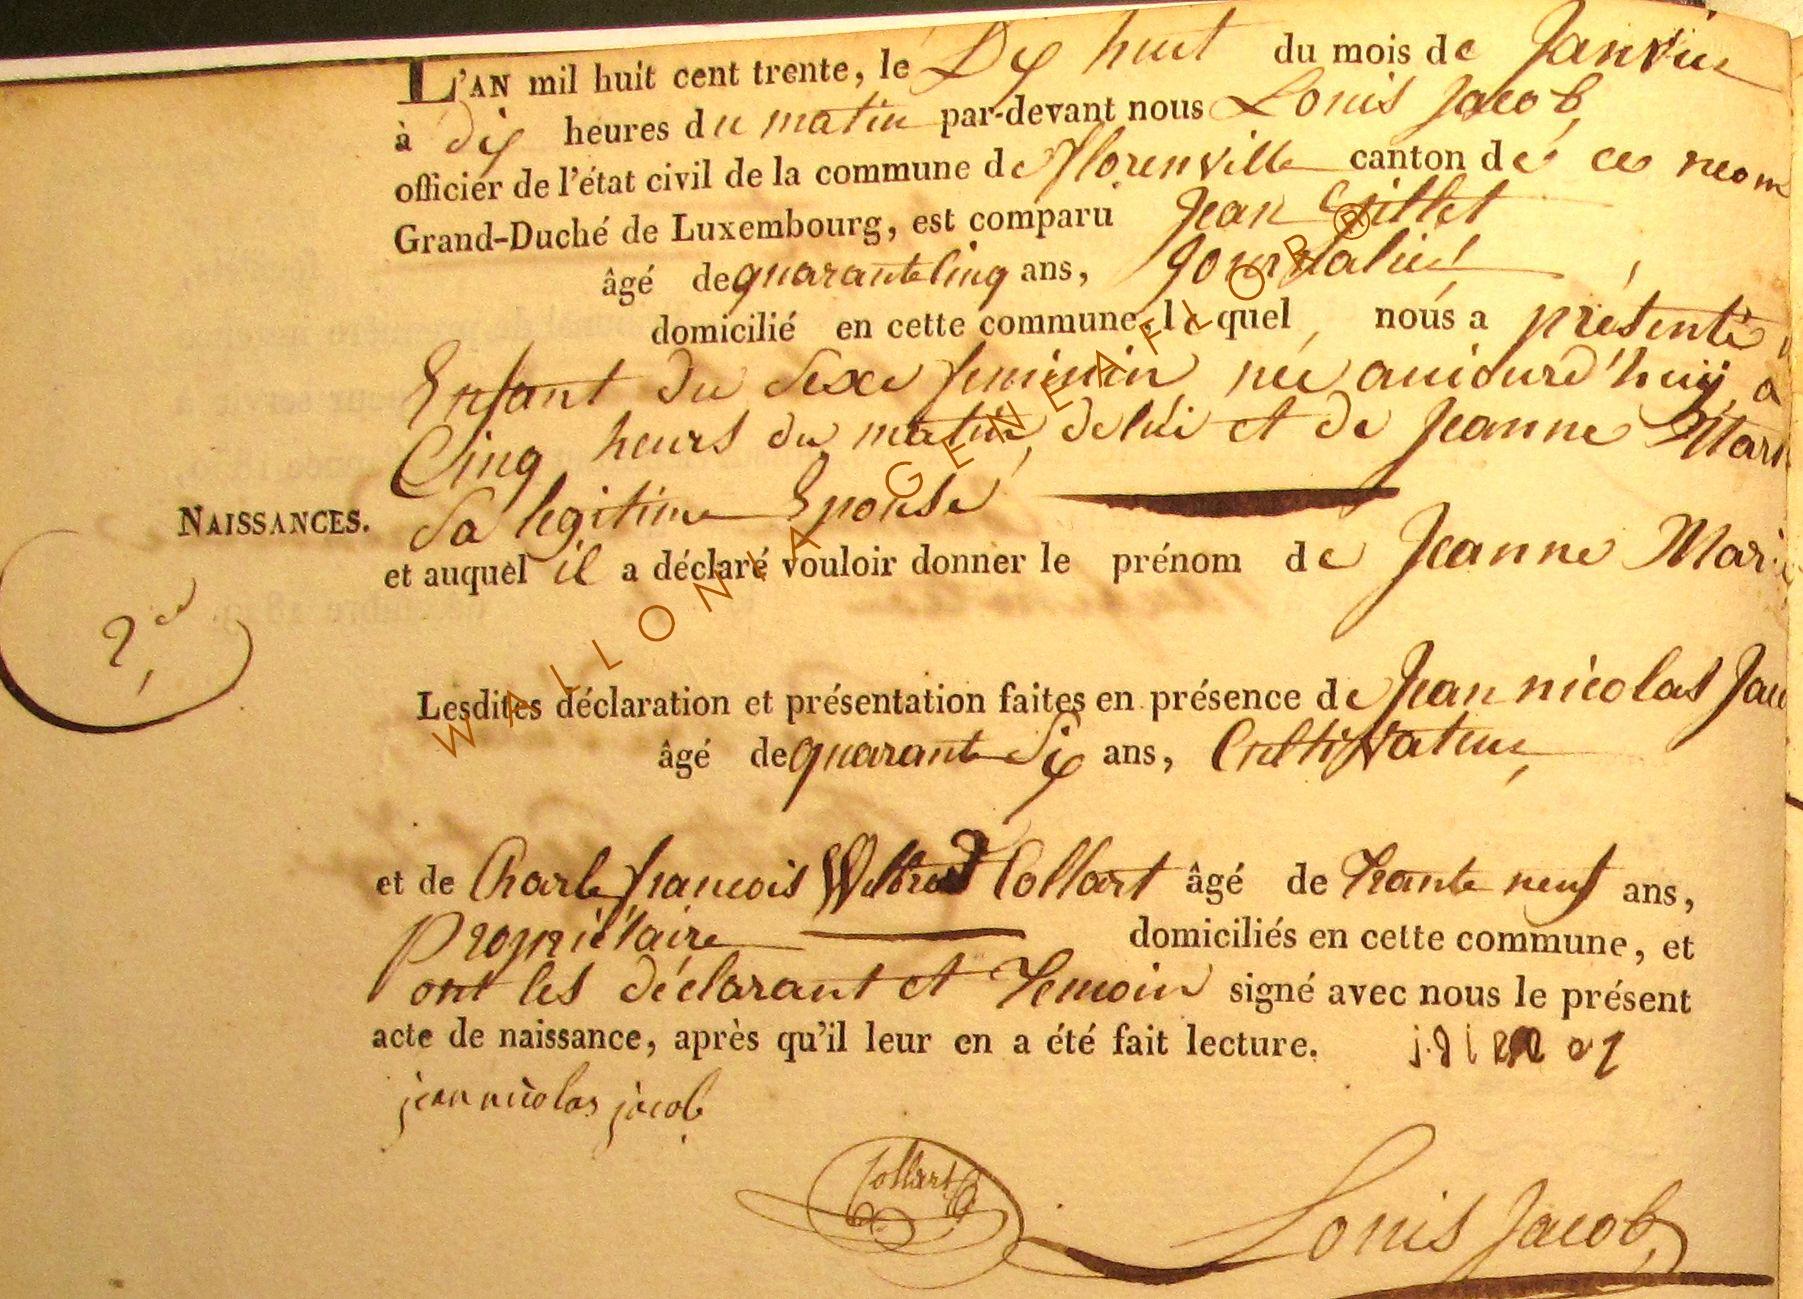 L'AN mil huit cent trente, le Dix huit du mois de Janvier
à dix heures du matin par-devant nous Louis Jacob,
officier de l'état civil de la commune de Florenville canton de ce nom
Grand-Duché de Luxembourg, est comparu Jean Gillet
âgé de quarante Cinq ans, Journalier
domicilié en cette commune, lequel nous a présenté
Enfant du Sexe feminin née aujourd'huy, a
Cinq heurs du matin, de lui et de Jeanne Mari
Sa legitime Epouse
NAISSANCES.
et auquel il a déclaré vouloir donner le prénom de Jeanne Marie
2d
Lesdites déclaration et présentation faites en présence de Jean nicolas Jaco
âgé de quarante Six ans, Cultivateur,
et de Charle françois Collart âgé de Trante neuf ans,
Propriétaire domiciliés en cette commune, et
ont les déclarant et Temoin signé avec nous le présent
acte de naissance, après qu'il leur en a été fait lecture.
jean nicolas jacob
Collart
Louis Jacob
WALLONIA GENEAFLOR®